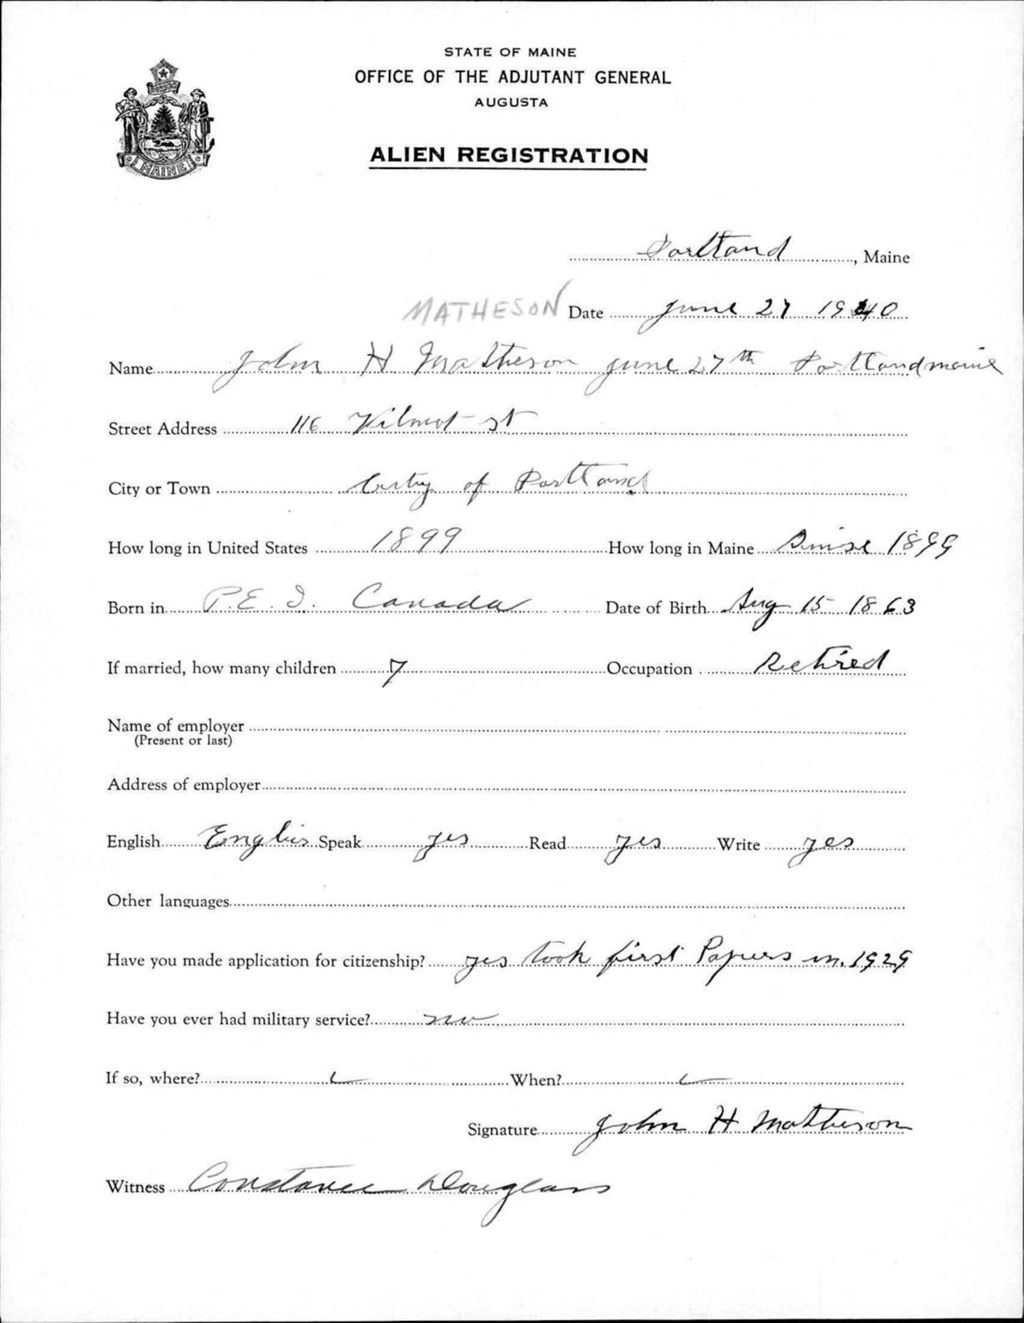 STATE OF MAINE
OFFICE OF THE ADJUTANT GENERAL
AUGUSTA
MAINE
ALIEN REGISTRATION
Portland, Maine
MATHESON Date June 27 1940
Name John H Matheson June 27th Portland maine
Street Address 116 Wilmot st
City or Town City of Portland
How long in United States 1899 How long in Maine Sinse 1899
Born in P.E.I. Canada Date of Birth Aug 15 1863
If married, how many children 7 Occupation Retired
Name of employer
(Present or last)
Address of employer
English Englis Speak yes Read yes Write yes
Other languages
Have you made application for citizenship? yes took first Papers in 1929
Have you ever had military service? no
If so, where? When?
Signature John H Matheson
Witness Constance Douglass